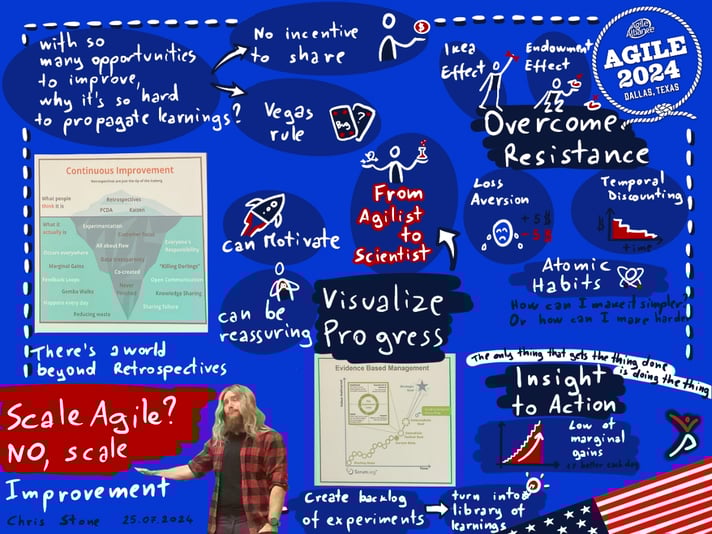 with so
many opportunities
to improve,
why it's so hard
to propagate learnings?
No incentive
to share
Vegas
rule
Bug
?
$
Ikea
Effect
Endowment
Effect
Agile
Alliance
AGILE
2024
DALLAS, TEXAS
Overcome
Resistance
Continuous Improvement
Retrospectives are just the tip of the iceberg
What people
think it is
Retrospectives
PCDA
Kaizen
What it
actually is
Experimentation
Customer focus
All about flow
Everyone's
Responsibility
Occurs everywhere
Data transparency
Marginal Gains
"Killing Darlings"
Co-created
Feedback Loops
Open Communication
Never
finished
Gemba Walks
Knowledge Sharing
Happens every day
Sharing failure
Reducing waste
There's a world
beyond Retrospectives
can Motivate
can be
reassuring
From
Agilist
to
Scientist
Visualize
Progress
Loss
Aversion
+5$
-5$
Temporal
Discounting
$
time
Atomic
Habits
How can I make it simpler?
Or how can I make harder
The only thing that gets the thing done
is doing the thing
Insight
to Action
Low of
marginal
gains
better each day
Evidence Based Management
Strategic
Goal
Intermediate
Goal
Immediate
Tactical Goal
Current State
Starting State
Time
Scrum.org
Create backlog
of experiments
turn into a
library of
learnings
Scale Agile?
NO, scale
Improvement
Chris Stone 25.07.2024